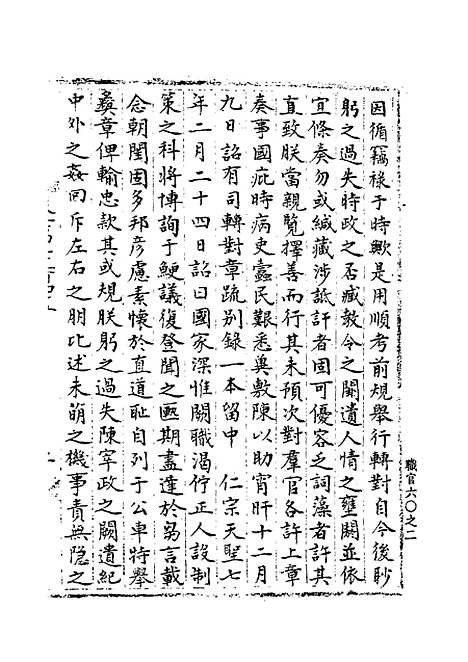 因循竊祿于時歟是用順考前規舉行轉對自今後眇
躬之過失時政之否臧敎令之闕遺人情之壅闕並依
宜條奏勿或緘藏涉詆訐者固可優容乏詞藻者許其
直致朕當親覽擇善而行其未預次對羣官各許上章
奏事國疵時病吏蠧民艱悉與敷陳以助宵旰十二月
九日詔有司轉對章疏别錄一本留中 仁宗天聖七
年二月二十四日詔曰國家深惟闕職渴佇正人設制
策之科將博詢于鯁議復登聞之匭期盡達於芻言載
念朝閨固多邦彦慮素懷於直道耻自列于公車特舉
彝章俾輸忠款其或規朕躬之過失陳宰政之闕遺紀
中外之姦回斥左右之朋比述未萌之機事責無隐之
職官六〇之二